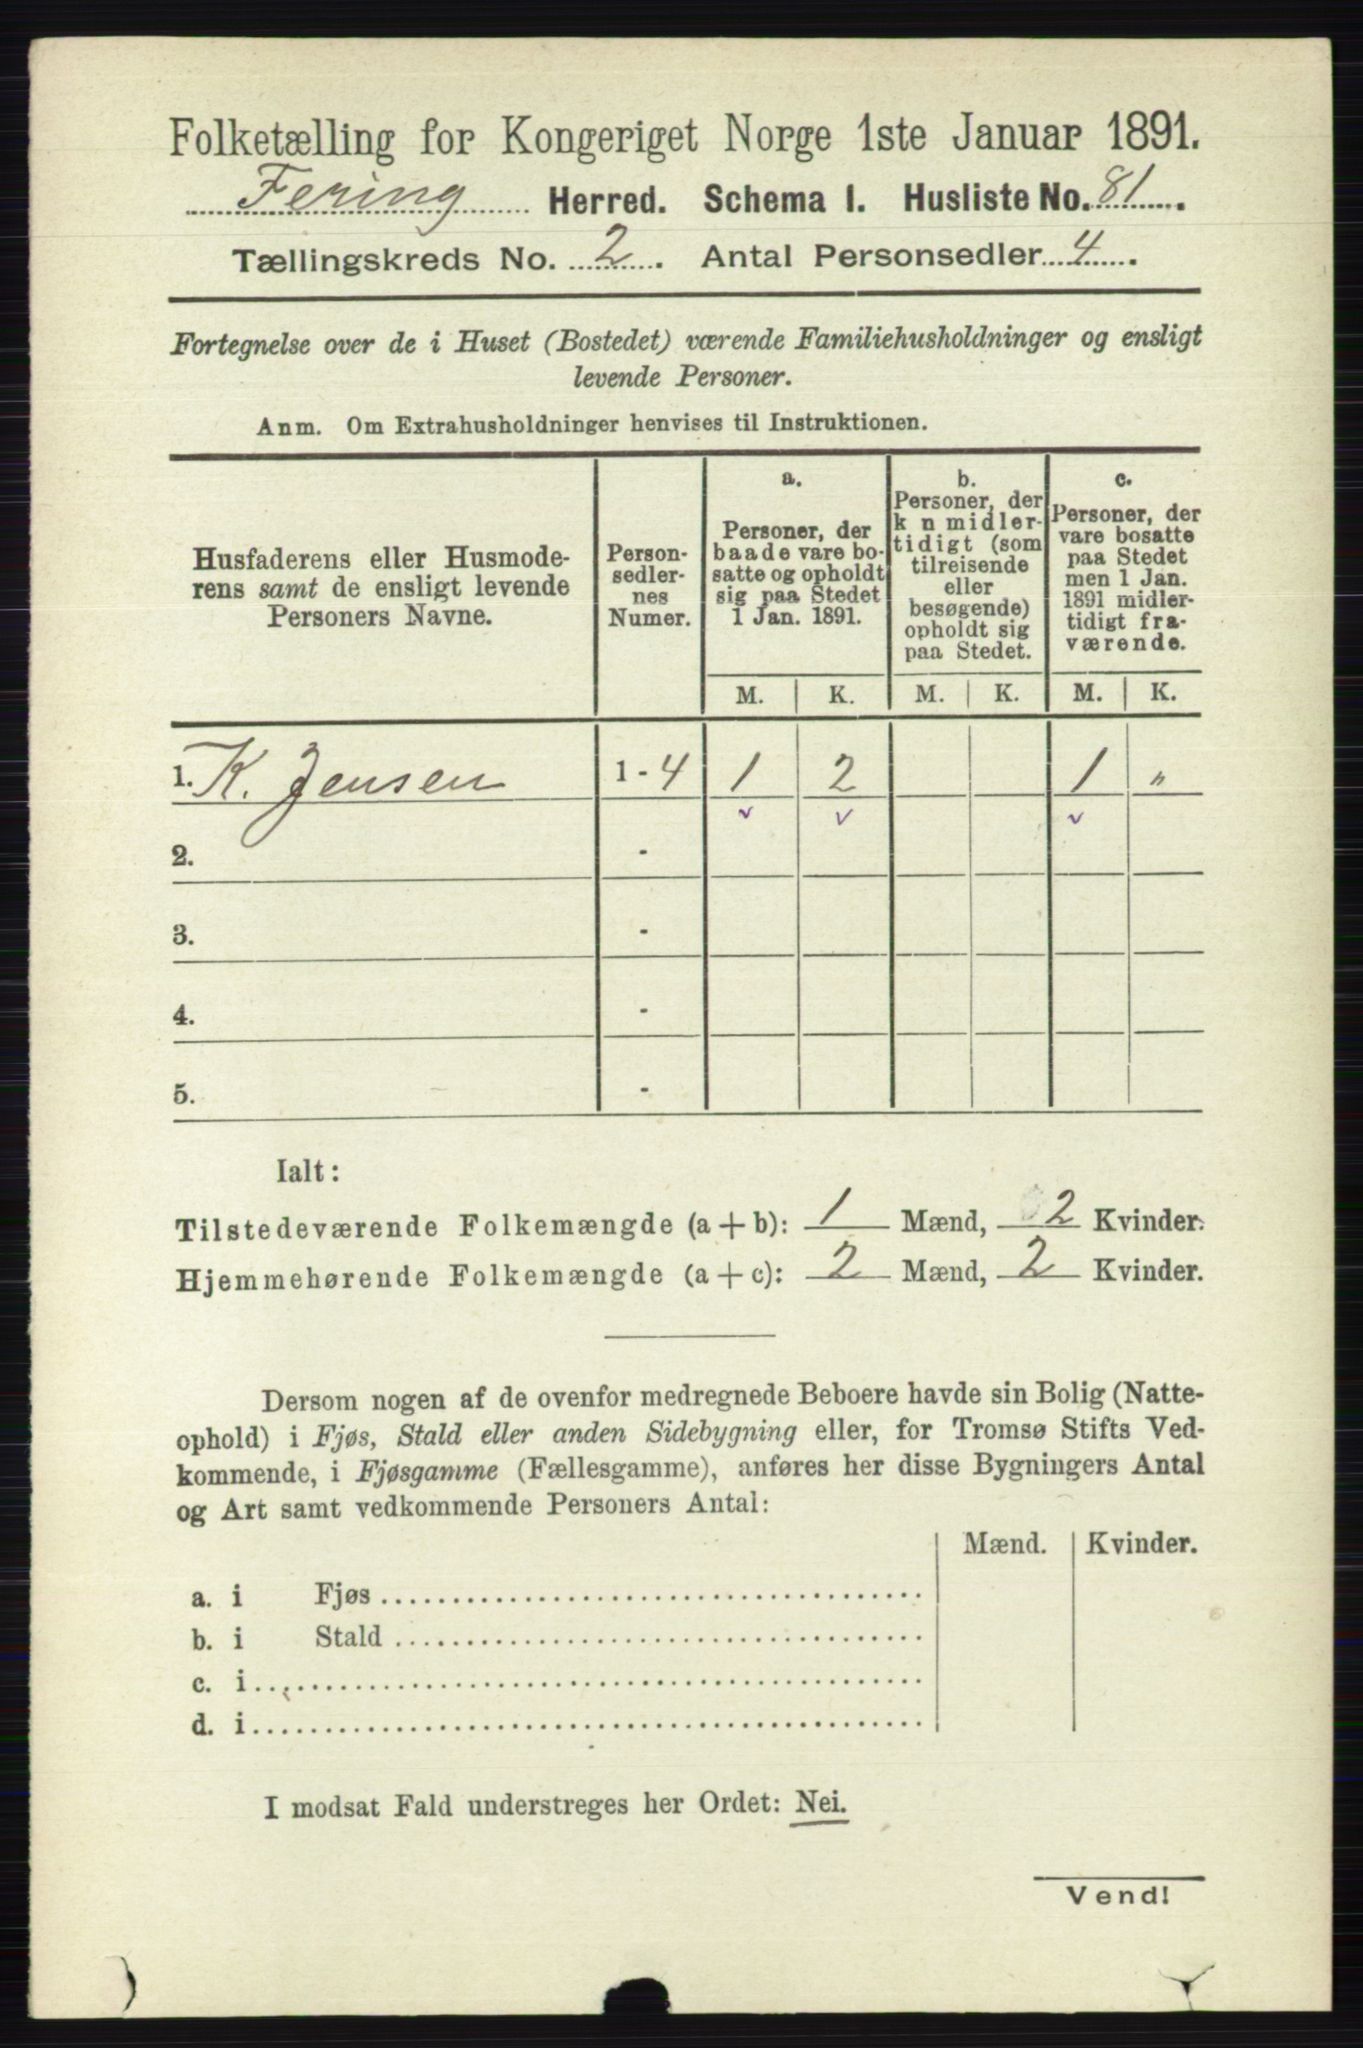 Folketælling for Kongeriget Norge 1ste Januar 1891.
Fering Herred. Schema 1. Husliste No. 81.
Tællingskreds No. 2. Antal Personsedler 4.
Fortegnelse over de i Huset (Bostedet) værende Familiehusholdninger og ensligt
levende Personer.
Anm. Om Extrahusholdninger henvises til Instruktionen.
Husfaderens eller Husmode-
rens samt de ensligt levende
Personers Navne.
Person-
sedler-
nes
Numer.
a.
Personer, der
baade vare bo-
satte og opholdt
sig paa Stedet
1 Jan. 1891.
b.
Personer, der
k n midler-
tidigt (som
tilreisende
eller
besøgende)
opholdt sig
paa Stedet.
c.
Personer, der
vare bosatte
paa Stedet
men 1 Jan.
1891 midler-
tidigt fra-
værende.
M. K. M. K. M. K.
1. K. Jensen 1 - 4 1 2 1 "
v v v
2. -
3. -
4. -
5. -
Ialt:
Tilstedeværende Folkemængde (a + b): 1 Mænd, 2 Kvinder.
Hjemmehørende Folkemængde (a + c): 2 Mænd, 2 Kvinder.
Dersom nogen af de ovenfor medregnede Beboere havde sin Bolig (Natte-
ophold) i Fjøs, Stald eller anden Sidebygning eller, for Tromsø Stifts Ved-
kommende, i Fjøsgamme (Fællesgamme), anføres her disse Bygningers Antal
og Art samt vedkommende Personers Antal:
Mænd. Kvinder.
a. i Fjøs
b. i Stald
c. i
d. i
I modsat Fald understreges her Ordet: Nei.
Vend!